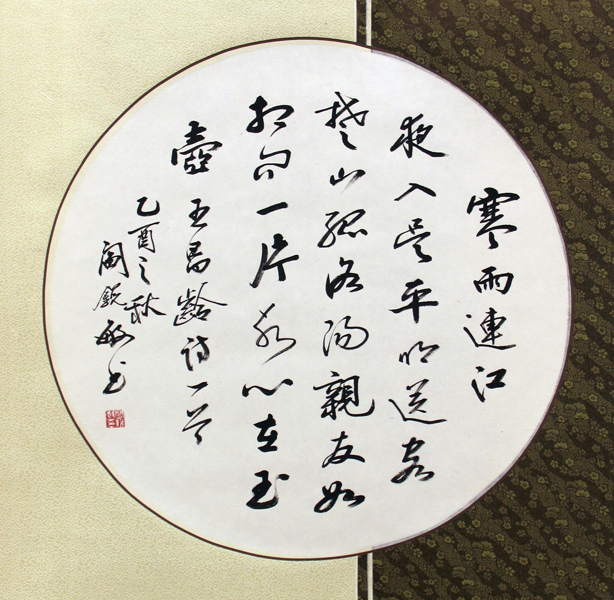 寒雨連江
夜入吳平明送客
楚山孤洛陽親友如
相問一片冰心在玉
壺 王昌齡詩一首
乙酉之秋
閻銳敏书